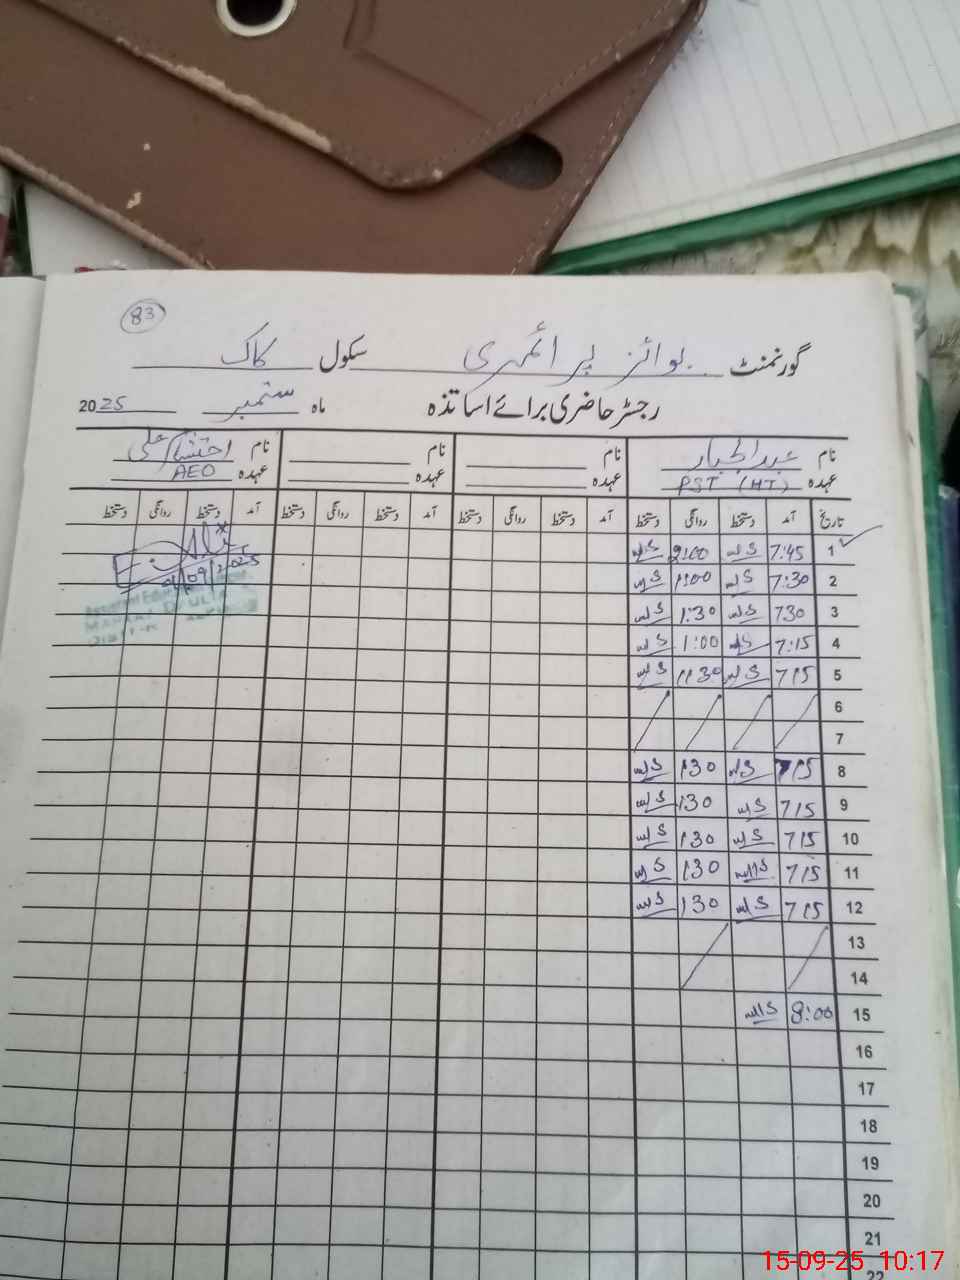 83
گورنمنٹ بوائز پرائمری سکول کاک
رجسٹر حاضری برائے اساتذہ ماہ ستمبر 2025
نام عبدالجبار نام نام نام احتشام علی
عہدہ PST (HT) عہدہ عہدہ عہدہ AEO
تاریخ آمد دستخط روانگی دستخط آمد دستخط روانگی دستخط آمد دستخط روانگی دستخط آمد دستخط روانگی دستخط
1 7:45 2:00
2 7:30 1:00
3 730 1:30
4 7:15 1:00
5 715 1:30
6
7
8 715 130
9 715 130
10 715 130
11 715 130
12 715 130
13
14
15 8:00
16
17
18
19
20
21
22
15-09-25 10:17